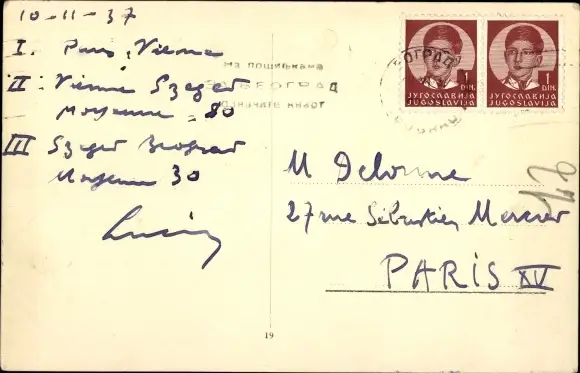 10-11-37
I. Paris, Vienne
II: Vienne Szeged
Moyenne = 80
III Szeged Beograd
Moyenne 30
Lucien
НА ПОШИЉКАМА
ЗА БЕОГРАД
ОЗНАЧИТЕ КВАРТ
БЕОГРАД
1
ДИН.
ЈУГОСЛАВИЈА
JUGOSLAVIJA
1
ДИН.
ЈУГОСЛАВИЈА
JUGOSLAVIJA
M Delorme
27 rue Sébastien Mercier
PARIS XV
19